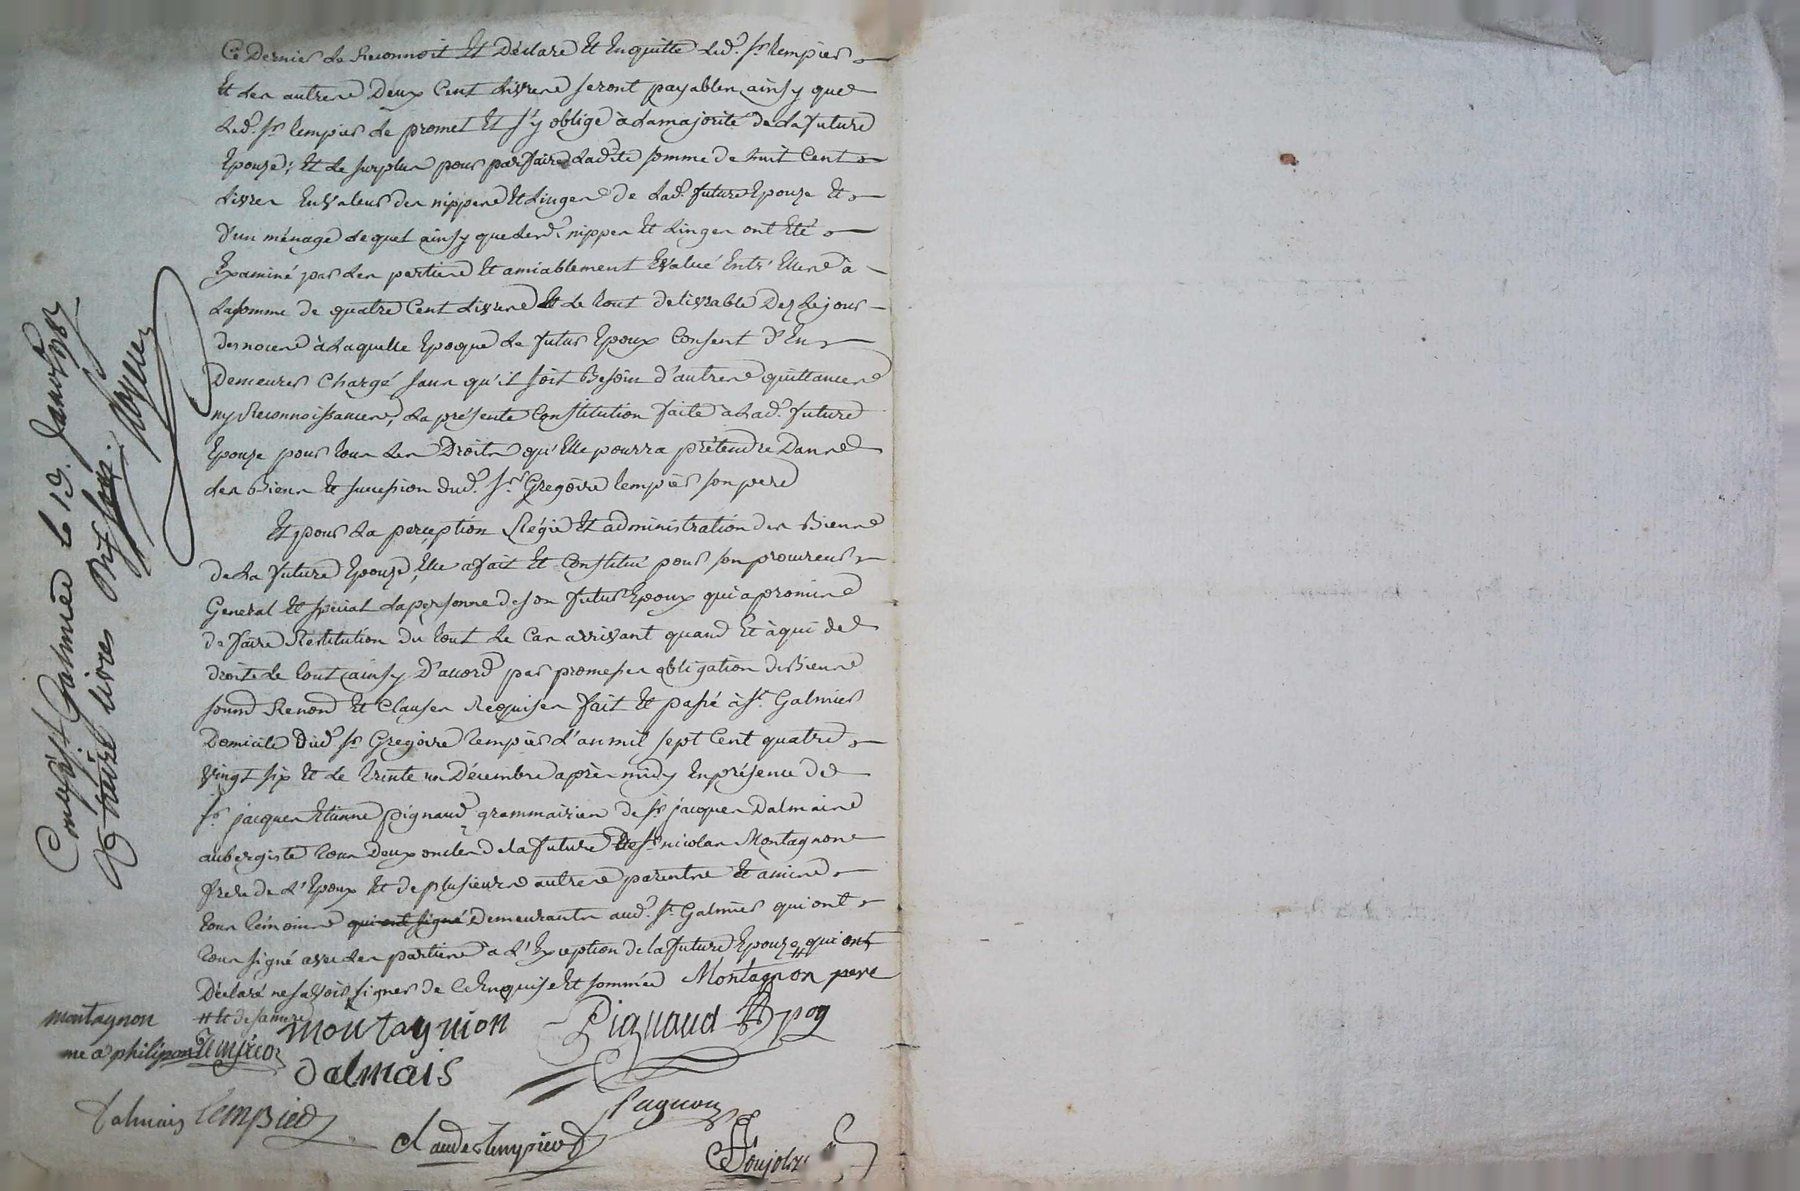 Ce Dernier Le Reconnoit Et Déclare Et Enquitte Led. Sr. tempier
Et Les autres Deux Cent Livres seront payables ainsy que
Led. Sr. tempier Le promet Et s'y oblige à La majorité de La future
Epouze; Et Le surplus pour parfaire Ladite somme de huit Cent
Livres En valeur des nippes Et Linges de Lad. future Epouze Et
d'un ménage Lequel ainsy que Lesd. nippes Et Linges ont Eté
Examiné par Les parties Et amiablement Evalué Entr'Elles à
La somme de quatre Cent Livres Et Le tout delivrable Dez Le jour
des noces à Laquelle Epoque Le futur Epoux Consent d'En
Demeurer Chargé sans qu'il soit Besoin d'autres quittances
ny Reconnoissances, La présente Constitution faite à Lad. future
Epouze pour tous Les Droits qu'Elle pourra prétendre Dans
Les Biens Et succesion dud. Sr. Gregoire tempier son pere
Et pour La perception Régie Et administration des Biens
de La future Epouze, Elle a fait Et Constitué pour son procureur
General Et spécial La personne de son futur Epoux qui a promis
de faire Restitution du tout Le Cas arrivant quand Et à qui de
droit Le tout ainsy D'accord par promesses obligation de Biens
soumd Renond Et Clauses Requises fait Et passé à St. Galmier
Domicile dud. Sr. Gregoire tempier L'an mil sept Cent quatre
vingt six Et Le trente un Décembre après midy En présence de
Sr. jacques Etienne pignaud grammairien de Sr. jacques Dalmais
aubergiste tous Deux oncles de la future Et Sr. nicolas Montagnon
frere de L'Epoux Et de plusieurs autres parents Et amis
tous témoins qui ont signé Demeurants aud. St. Galmier qui ont
tous signé avec Les parties a L'Exception de la future Epouze qui ont
Déclaré ne savoir signer de Ce Enquise Et sommée Montagnon pere
montagnon
montagnion Pignaud
me a philipon
Dalmais
Dalmais tempied
pagnon
Claude tempied
Poujol
Con. à St Galmier le 19. Janv. 1787
R. treize livres